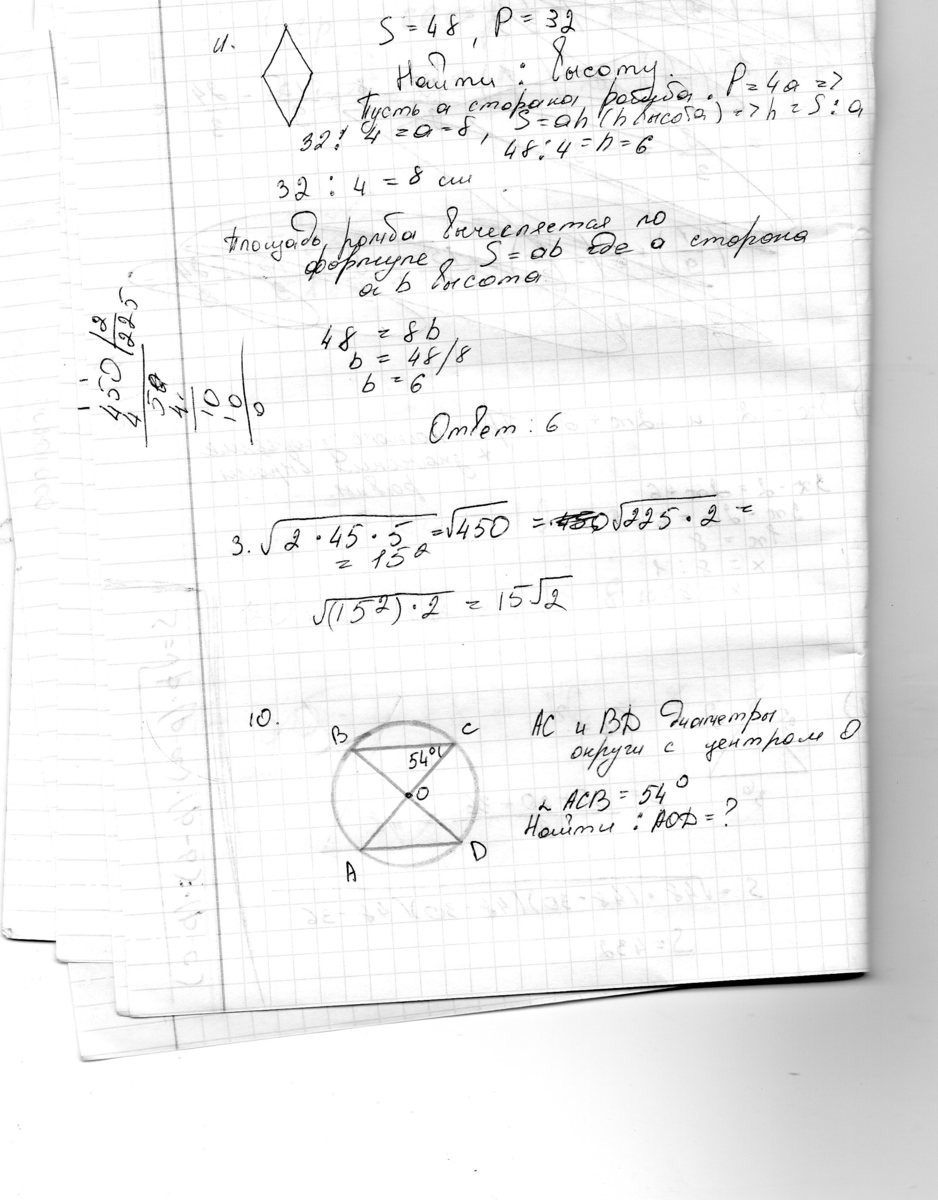 11.
S = 48, P = 32
Найти : высоту.
Пусть а сторона ромба. P = 4a =>
32 : 4 = a = 8, S = ah (h высота) => h = S : a
48 : 4 = h = 6
32 : 4 = 8 см
Площадь ромба вычесляется по
формуле S = ab где a сторона
а b высота
48 = 8b
b = 48/8
b = 6
Ответ : 6
450 2
4 225
50
4
10
10
0
3. √2 · 45 · 5 = √450 = √225 · 2 =
= 15²
√(15²) · 2 = 15√2
10.
B C
54°
O
A D
AC и BD диаметры
округи с центром O
∠ ACB = 54°
Найти : AOD = ?